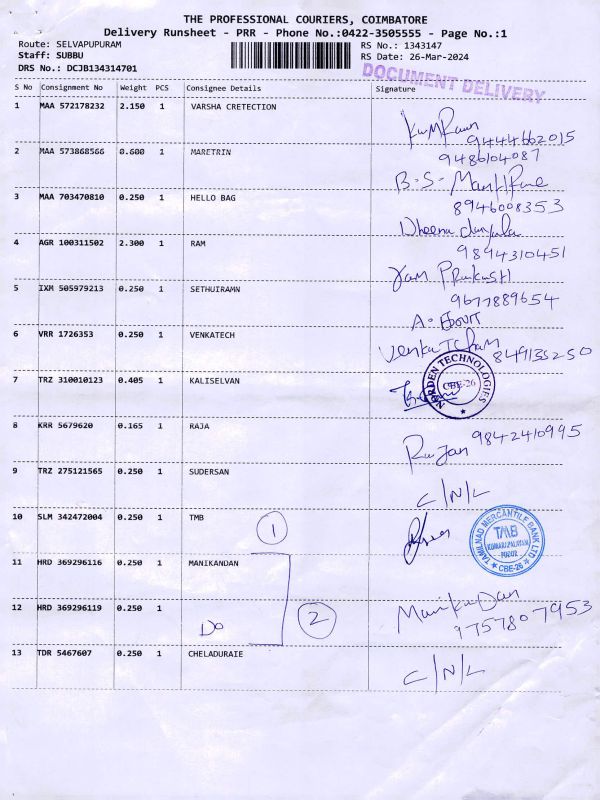 THE PROFESSIONAL COURIERS, COIMBATORE
Delivery Runsheet - PRR - Phone No.:0422-3505555 - Page No.:1
Route: SELVAPUPURAM
RS No.: 1343147
Staff: SUBBU
RS Date: 26-Mar-2024
DRS No.: DCJB134314701
DOCUMENT DELIVERY
S No Consignment No Weight PCS Consignee Details Signature
1 MAA 572178232 2.150 1 VARSHA CRETECTION
9444662015
2 MAA 573868566 0.600 1 MARETRIN
9486104087
B.S-
3 MAA 703470810 0.250 1 HELLO BAG
8946008353
Dheena
4 AGR 100311502 2.300 1 RAM
9894310451
5 IXM 505979213 0.250 1 SETHUIRAMN
9677889654
6 VRR 1726353 0.250 1 VENKATECH
8491355250
7 TRZ 310010123 0.405 1 KALISELVAN
NORDEN TECHNOLOGIES
CBE-26
8 KRR 5679620 0.165 1 RAJA
Rajan 9842410995
9 TRZ 275121565 0.250 1 SUDERSAN
C/N/L
10 SLM 342472004 0.250 1 TMB
1
TAMILNAD MERCANTILE BANK LTD
TMB
CBE-26
11 HRD 369296116 0.250 1 MANIKANDAN
12 HRD 369296119 0.250 1
Do
2
ManikanDan
9757807953
13 TDR 5467607 0.250 1 CHELADURAIE
C/N/L